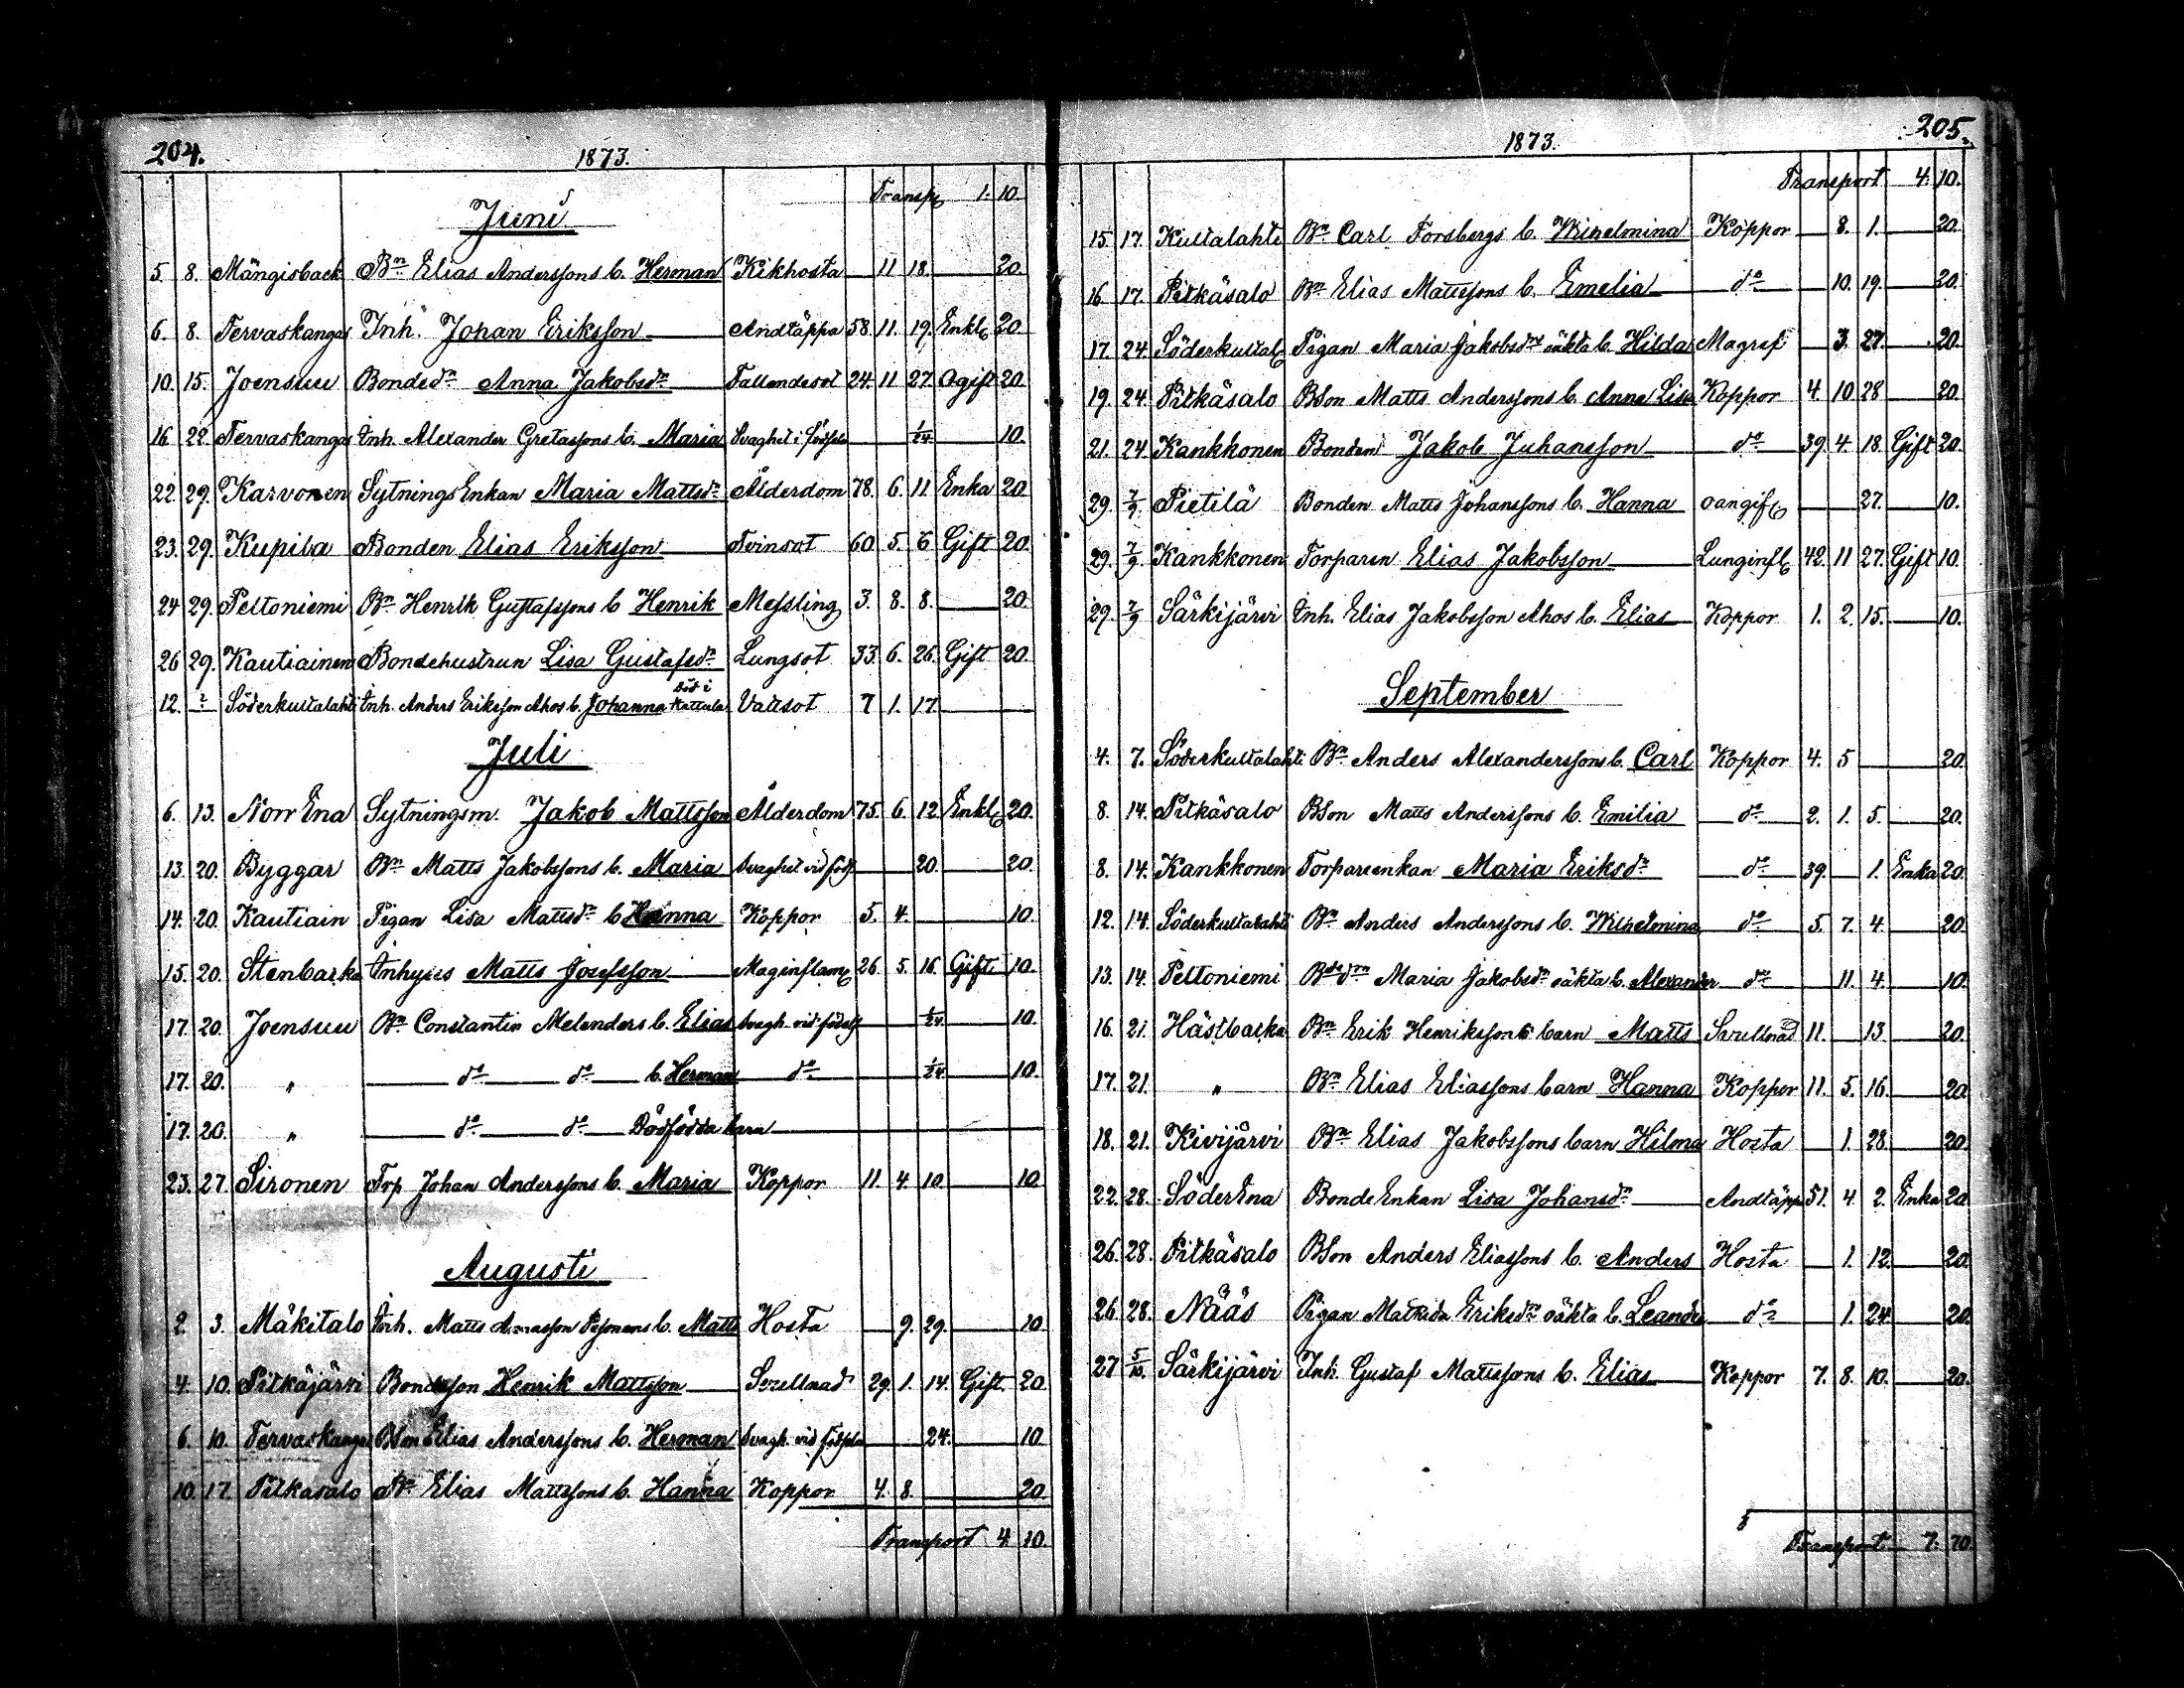 204.
1873.
Transp 1. 10.
Juni
5. 8. Mängisback Bn Elias Anderssons b. Herman Kikhosta 11 18. 20.
6. 8. Tervaskangas Inh. Johan Eriksson Andtäppa 58. 11. 19. Enkl 20
10. 15. Joensuu Bonded. Anna Jakobsdr Fallandesot 24. 11 27. Ogift 20
16 22. Tervaskangas Inh. Alexander Gretassons b. Maria Svaghet i födseln 1/24 10.
22. 29. Karvonen Sytnings Enkan Maria Mattsdr Ålderdom 78. 6. 11 Enka 20
23. 29. Kupila Bonden Elias Eriksson Tvinsot 60 5. 6 Gift 20.
24 29. Peltoniemi Bn Henrik Gustafssons b Henrik Messling 3. 8. 8. 20.
26 29. Kautiainen Bondehustrun Lisa Gustafsdr Lungsot 33. 6. 26. Gift 20.
12. Söderkultalahti Inh. Anders Eriksson Ahos b. Johanna död i Vattsot 7 1. 17.
Juli
6. 13. Norr Ena Sytningsm. Jakob Mattsson Ålderdom 75. 6. 12. Enkl 20.
13. 20. Byggar Bn Matts Jakobssons b. Maria Svaghet vid föds 20. 20.
14. 20. Kautiain Pigan Lisa Mattsdr b Hanna Koppor 5. 4. 10.
15. 20. Stenbacka Inhyses Matts Josefsson Maginflam 26. 5. 16. Gift 10.
17. 20. Joensuu Bn Constantin Melenders b. Elias Svagh. vid födels 1/24. 10.
17. 20. " do do b. Herman do 1/24. 10.
17. 20. " do do Dödfödda barn
23. 27. Sironen Trp Johan Anderssons b. Maria Koppor 11 4. 10. 10
Augusti
2. 3. Mäkitalo Inh. Matts b. Matts Hosta 9. 29. 10
4. 10. Pitkäjärvi Bondeson Henrik Mattsson Svullnad 29. 1. 14. Gift 20
6. 10. Tervaskangas BSon Elias Anderssons b. Herman Svagh. vid födseln 24. 10
10. 17. Pitkäsalo Bn Elias Mattssons b. Hanna Koppor 4. 8. 20.
Transport 4 10.
205.
1873.
Transport 4. 10.
15. 17. Kultalahti Bn Carl Forsbergs b. Wilhelmina Koppor 8. 1. 20.
16. 17. Pitkäsalo Bn Elias Mattssons b. Emelia do 10. 19. 20.
17. 24. Söderkultal Pigan Maria Jakobsdrs oäkta b. Hilda Magref 3. 27. 20.
19. 24. Pitkäsalo BSon Matts Anderssons b. Anna Lisa Koppor 4 10 28 20.
21. 24. Kankkonen Bonden Jakob Juhansson do 39. 4. 18. Gift 20.
29. 7/9. Pietilä Bonden Matts Johanssons b. Hanna oangif 27. 10.
29. 7/9. Kankkonen Torparen Elias Jakobsson Lunginfl 42. 11 27. Gift 10.
29. 7/9 Särkijärvi Inh. Elias Jakobsson Ahos b. Elias Koppor 1. 2. 15. 10.
September
4. 7. Söderkultalahti Bn Anders Alexanderssons b. Carl Koppor 4. 5 20.
8. 14. Pitkäsalo BSon Matts Anderssons b. Emilia do 2. 1. 5. 20.
8. 14. Kankkonen Torpareenkan Maria Eriksdr do 39. 1. Enka 20.
12. 14. Söderkultalahti Bn Anders Anderssons b. Wilhelmina do 5. 7. 4 20
13. 14. Peltoniemi Bdedrn Maria Jakobsdr oäkta b. Alexander do 11. 4. 10.
16. 21. Hästbacka Bn Erik Henrikssons barn Matts Svullnad 11. 13. 20.
17. 21. " Bn Elias Eliassons barn Hanna Koppor 11. 5. 16. 20.
18. 21. Kivijärvi Bn Elias Jakobssons barn Hilma Hosta 1. 28. 20.
22. 28. Söder Ena Bonde Enkan Lisa Johansdr Andtäppa 51. 4 2. Enka 20
26. 28. Pitkäsalo BSon Anders Eliassons b. Anders Hosta 1. 12. 20.
26. 28. Nääs Pigan Matilda Eriksdrs oäkta b. Leander do 1. 24. 20.
27 5/10. Särkijärvi Inh. Gustaf Mattssons b. Elias Koppor 7. 8. 10. 20.
Transport 7. 70.